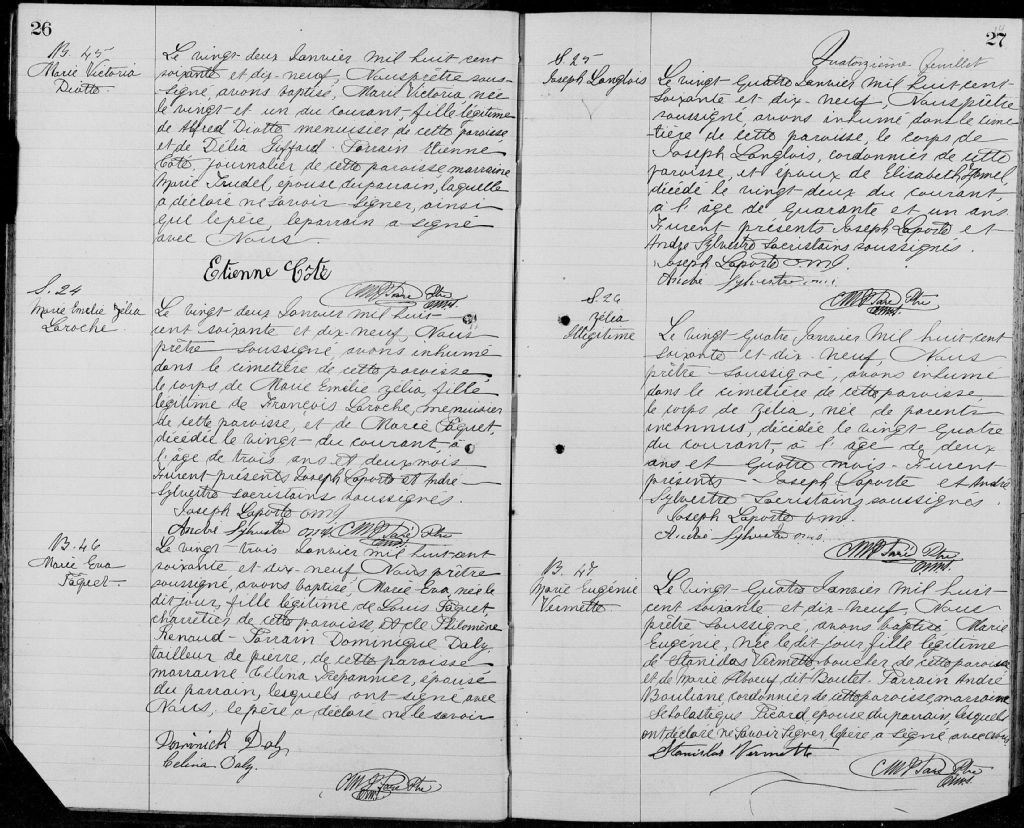 26
B. 45
Marie Victoria
Diotte
Le vingt-deux Janvier mil huit-cent
soixante et dix-neuf, Nous prêtre sous-
signé, avons baptisé, Marie Victoria née
le vingt et un du courant, fille légitime
de Alfred Diotte menuisier de cette paroisse
et de Délia Giffard. Parrain Etienne
Côté, journalier de cette paroisse, marraine
Marie Trudel, epouse du parrain, laquelle
a déclaré ne savoir signer, ainsi
que le père, le parrain a signé
avec Nous.
Etienne Côté
Ptre
omi
S. 24
Marie Emélie Zélia
Laroche
Le vingt-deux Janvier mil huit-
cent soixante et dix-neuf, Nous
prêtre soussigné, avons inhumé
dans le cimetière de cette paroisse
le corps de Marie Emélie Zélia, fille
légitime de François Laroche, menuisier
de cette paroisse, et de Marie Paquet,
dicédée le vingt du courant, à
l'âge de trois ans et deux mois
Furent présents Joseph Laporte et André
Sylvestre sacristains soussignés.
Joseph Laporte omj
André Sylvestre omi
Ptre
B. 46
Marie Eva
Paquet
Le vingt-trois Janvier mil huit-cent
soixante et dix-neuf Nous prêtre
soussigné, avons baptisé, Marie Eva, née le
dit jour, fille légitime de Louis Paquet
charretier de cette paroisse, et de Philomène
Renaud - Parrain Dominique Daly,
tailleur de pierre, de cette paroisse
marraine Célina Trepannier, epouse
du parrain, lesquels ont signé avec
Nous, le père a déclaré ne le savoir
Dominick Daly
Celina Daly.
Ptre
omi
27
Quatorzième feuillet
S. 25
Joseph Langlois
Le vingt quatre Janvier mil huit cent-
soixante et dix-neuf, Nous prêtre
soussigné avons inhumé dans le cime
tière de cette paroisse, le corps de
Joseph Langlois, cordonnier de cette
paroisse, et époux de Elisabeth Hamel,
décédé le vingt deux du courant,
à l'âge de quarante et un ans
Furent présents Joseph Laporte et
André Sylvestre sacristains soussignés.
Joseph Laporte omj.
André Sylvestre omi
Ptre
omi
S. 26
Zélia
Illégitime
Le vingt quatre Janvier mil huit-cent
soixante et dix-neuf, Nous
prêtre soussigné, avons inhumé
dans le cimetière de cette paroisse,
le corps de Zélia, née de parents
inconnus, décédée le vingt quatre
du courant, à l'âge de deux
ans et quatre mois - Furent
présents Joseph Laporte et André
Sylvestre Sacristains soussignés
Joseph Laporte omj.
André Sylvestre omi.
Ptre
omi
B. 47
Marie Eugénie
Vermette
Le vingt-quatre Janvier mil huit
cent soixante et dix-neuf, Nous
prêtre soussigné, avons baptisé Marie
Eugénie, née le dit jour, fille légitime
de Stanislas Vermette de cette paroisse
et de Marie dit Boutet. Parrain André
Bouliane cordonnier de cette paroisse, marraine
Scholastique Picard, epouse du parrain, lesquels
ont déclaré ne savoir signer le père a signé avec nous
Stanislas Vermette
Ptre
omi